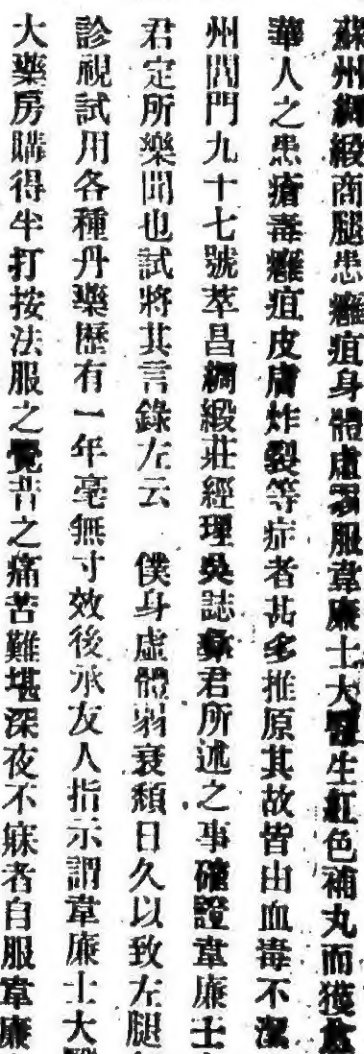 蘇州綢緞商腿患癰疽身體虛弱服韋廉士大醫生紅色補丸而獲
華人之患瘡毒癰疽皮膚炸裂等症者甚多推原其故皆由血毒不潔
州閶門九十七號萃昌綢緞莊經理吳誌君所述之事確證韋廉士
君定所樂聞也試將其言錄左云 僕身虛體弱衰頹日久以致左腿
診視試用各種丹藥歷有一年毫無寸效後承友人指示謂韋廉士大
大藥房購得半打按法服之覺昔之痛苦難堪深夜不寐者自服韋廉